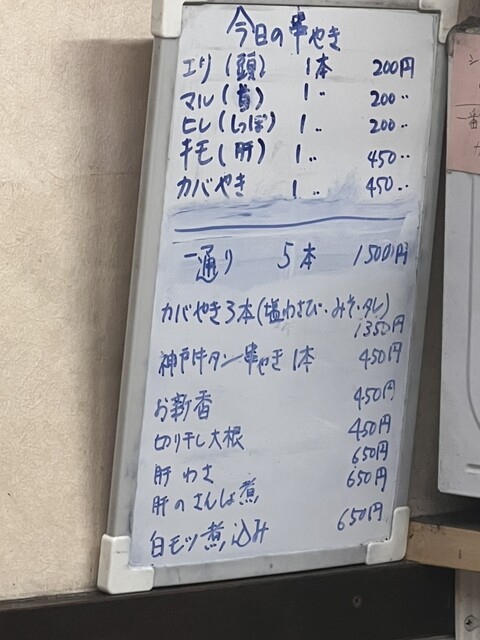 今日の串やき
エリ(頭) 1本 200円
マル(首) 1〃 200〃
ヒレ(しっぽ) 1〃 200〃
キモ(肝) 1〃 450〃
カバやき 1〃 450〃
一通り 5本 1500円
カバやき3本(塩わさび・みそ・タレ)
1350円
神戸牛タン串やき1本 450円
お新香 450円
切り干し大根 450円
肝わさ 650円
肝のさんしょ煮 650円
白モツ煮込み 650円
一番